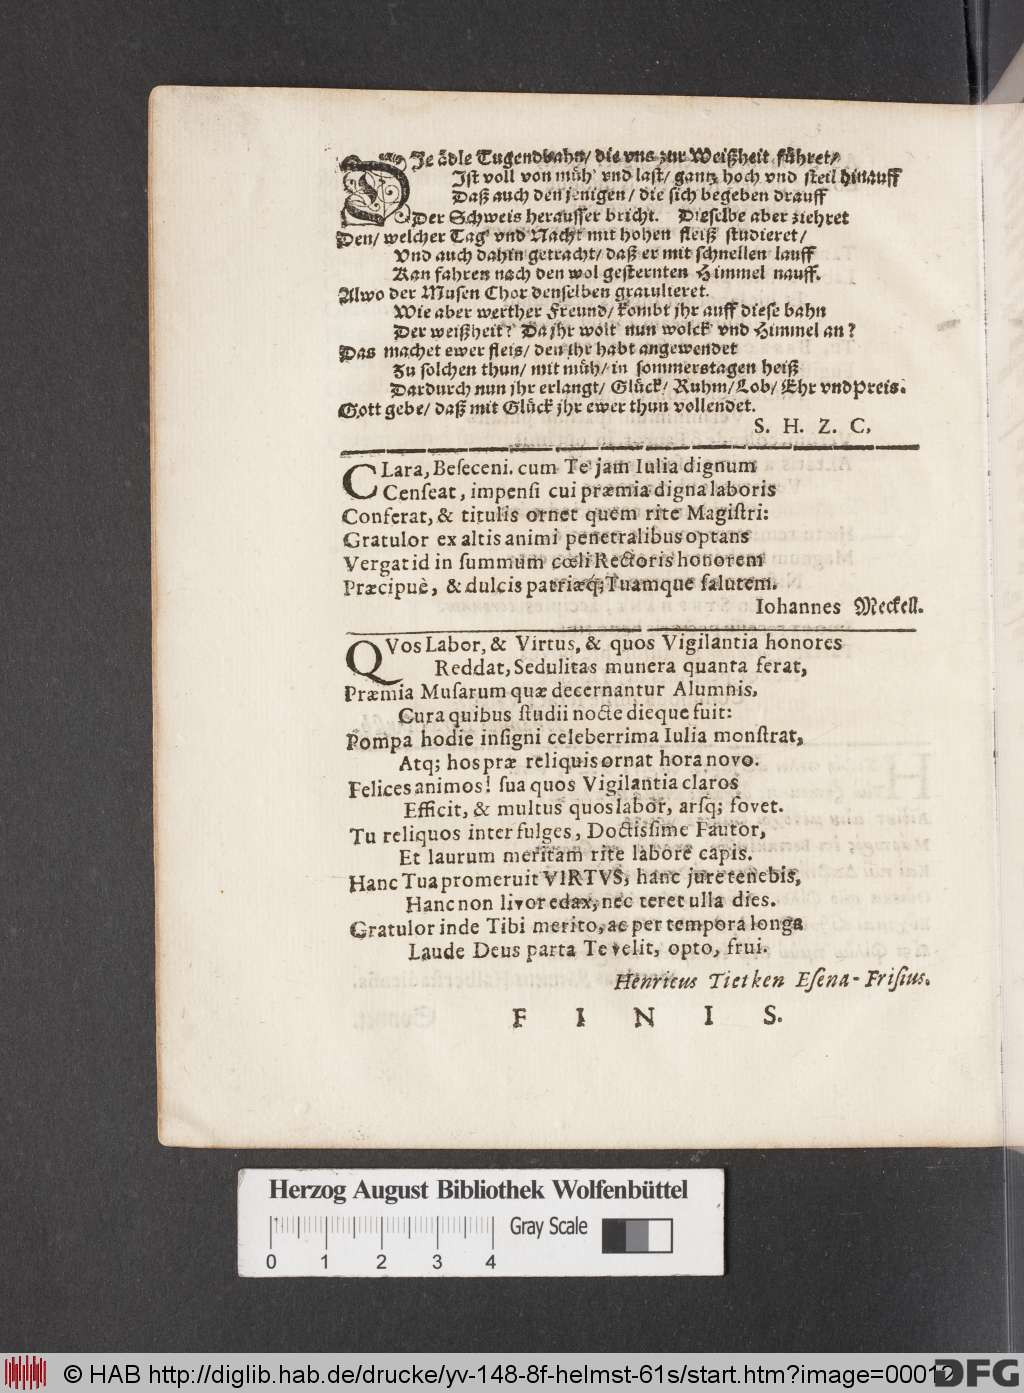 DJe ädle Tugendbahn/ die vns zur Weißheit führet/
Jst voll von müh' vnd last/ gantz hoch vnd steil hinauff
Daß auch denjenigen/ die sich begeben drauff
Der Schweis herausser bricht. Dieselbe aber ziehret
Den/ welcher Tag' vnd Nacht mit hohen fleiß studieret/
Vnd auch dahin getracht/ daß er mit schnellen lauff
Kan fahren nach den wol gesternten Himmel nauff.
Alwo der Musen Chor denselben gratulieret.
Wie aber werther Freund/ kombt jhr auff diese bahn
Der weißheit? Da jhr wolt nun wolck' vnd Himmel an?
Das machet ewer fleis/ den ihr habt angewendet
Zu solchen thun/ mit müh/ in sommerstagen heiß
Dardurch nun jhr erlangt/ Glück/ Ruhm/ Lob/ Ehr vnd Preis.
Gott gebe/ daß mit Glück jhr ewer thun vollendet.
S. H. Z. C.
CLara, Beſeceni. cum Te jam Iulia dignum
Cenſeat, impenſi cui præmia digna laboris
Conferat, & titulis ornet quem rite Magiſtri:
Gratulor ex altis animi penetralibus optans
Vergat id in ſummum cœli Rectoris honorem
Præcipuè, & dulcis patriæq; Tuamque ſalutem.
Iohannes Meckell.
QVos Labor, & Virtus, & quos Vigilantia honores
Reddat, Sedulitas munera quanta ferat,
Præmia Muſarum quæ decernantur Alumnis,
Cura quibus ſtudii nocte dieque fuit:
Pompa hodie inſigni celeberrima Iulia monſtrat,
Atq; hos præ reliquis ornat hora novo.
Felices animos! ſua quos Vigilantia claros
Efficit, & multus quos labor, arſq; fovet.
Tu reliquos inter fulges, Doctiſſime Fautor,
Et laurum meritam rite labore capis.
Hanc Tua promeruit VIRTVS, hanc jure tenebis,
Hanc non livor edax, nec teret ulla dies.
Gratulor inde Tibi merito, ac per tempora longa
Laude Deus parta Te velit, opto, frui.
Henricus Tietken Eſena-Friſius.
F I N I S.
Herzog August Bibliothek Wolfenbüttel
Gray Scale
0 1 2 3 4
© HAB http://diglib.hab.de/drucke/yv-148-8f-helmst-61s/start.htm?image=00012
DFG